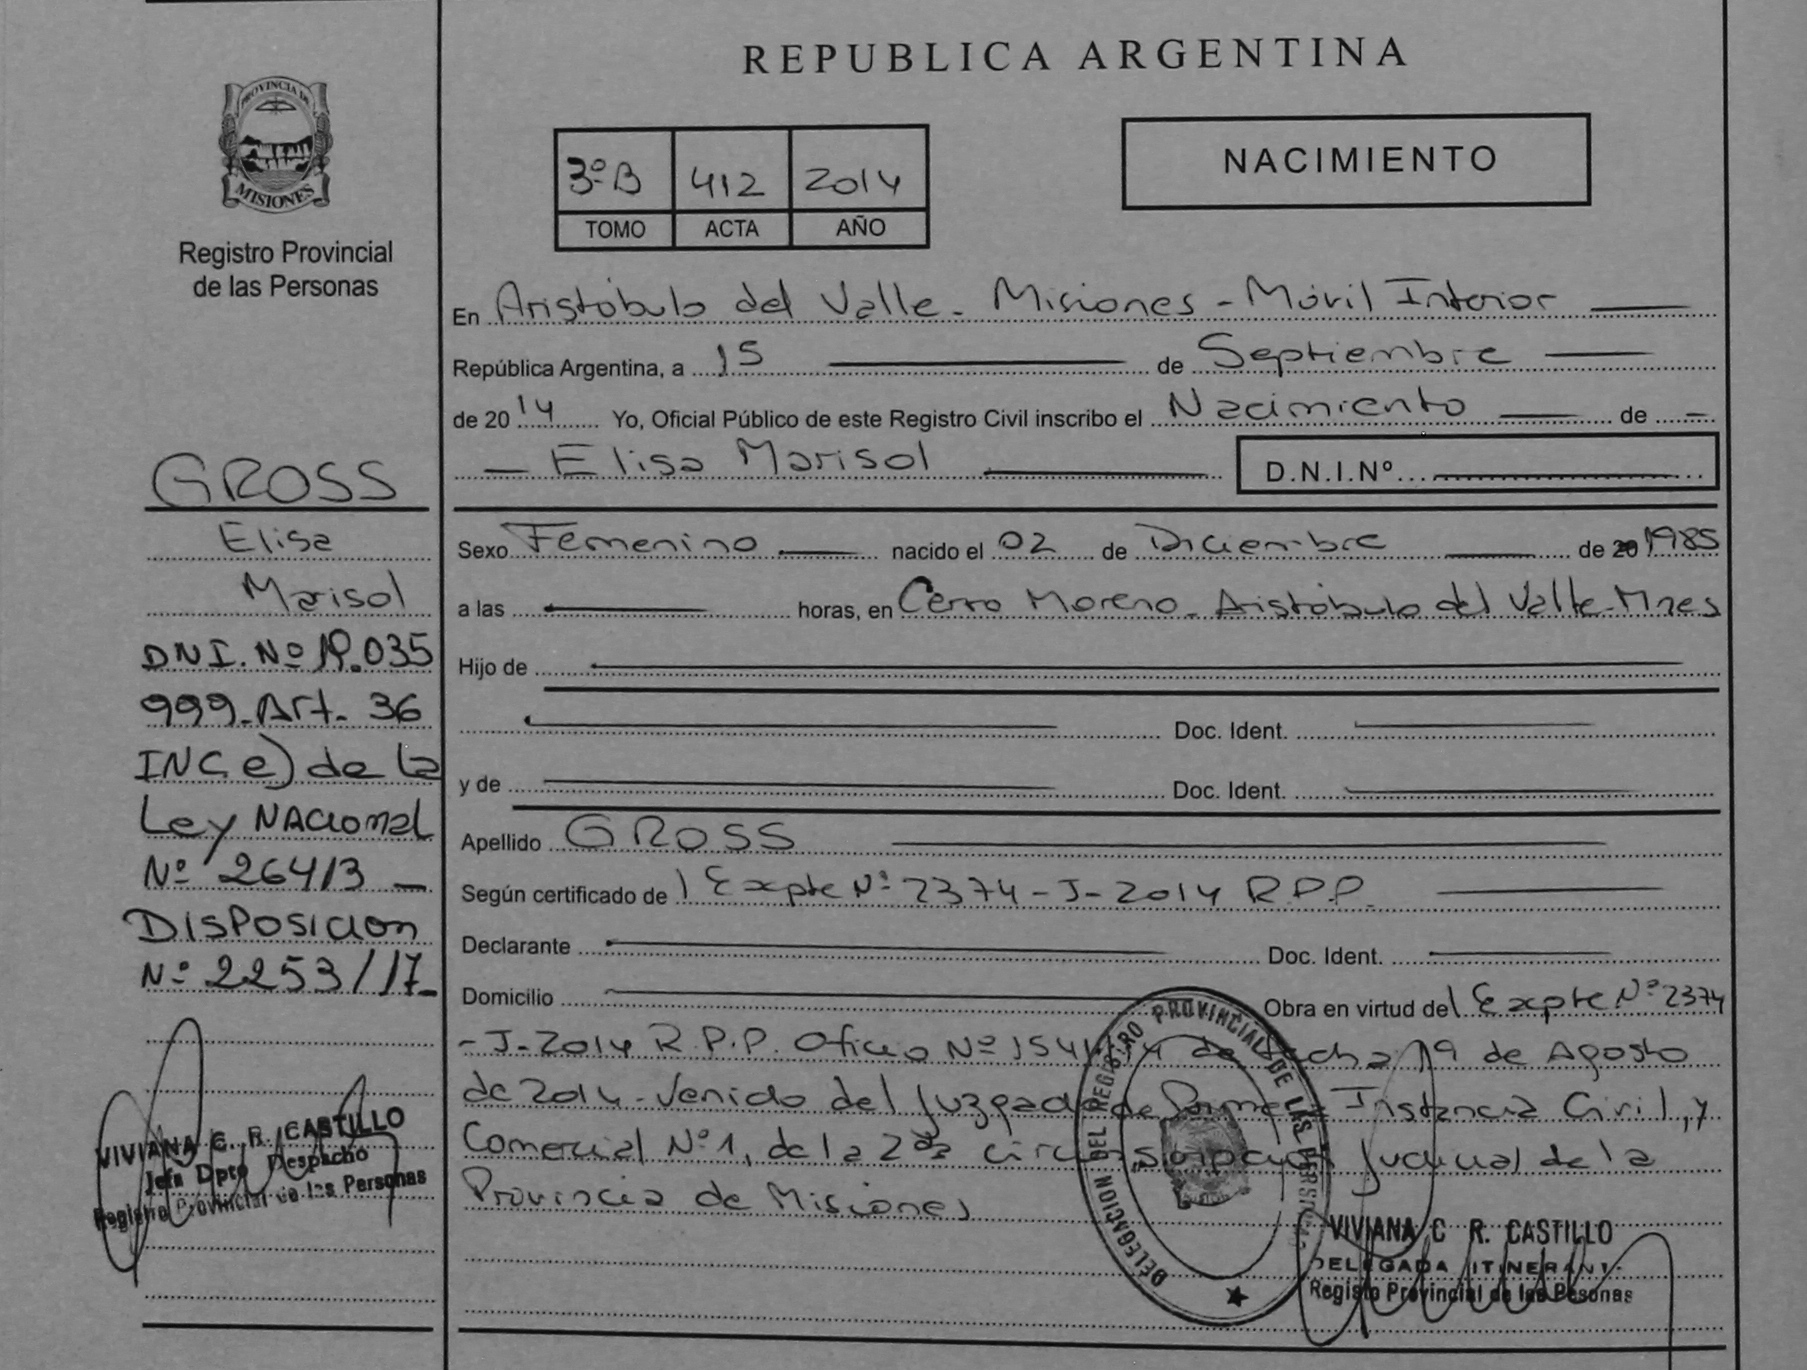 PROVINCIA DE
MISIONES
Registro Provincial
de las Personas
GROSS
Elisa
Marisol
DNI. Nº 19.035
999_Art. 36
INC e) de la
Ley NACIONAL
Nº 26413 _
DISPOSICION
Nº 2253/17_
VIVIANA C. R. CASTILLO
Jefa Dpto Despacho
Registro Provincial de las Personas
REPUBLICA ARGENTINA
3º B 412 2014
TOMO ACTA AÑO
NACIMIENTO
En Aristóbulo del Valle - Misiones - Móvil Interior
República Argentina, a 15 de Septiembre
de 2014 Yo, Oficial Público de este Registro Civil inscribo el Nacimiento de
Elisa Marisol D.N.I.Nº
Sexo Femenino nacido el 02 de Diciembre de 20 1985
a las horas, en Cerro Moreno - Aristóbulo del Valle - Mnes
Hijo de
Doc. Ident.
y de Doc. Ident.
Apellido GROSS
Según certificado de l Expte Nº 2374 - J - 2014 R.P.P.
Declarante Doc. Ident.
Domicilio Obra en virtud del Expte Nº 2374
- J - 2014 R.P.P. Oficio Nº de fecha 19 de Agosto
de 2014 - Venido del Juzgado de Primera Instancia Civil, y
Comercial Nº 1, de la 2da circunscripción Judicial de la
Provincia de Misiones
DELEGACION DEL REGISTRO PROVINCIAL DE LAS PERSONAS
VIVIANA C R. CASTILLO
DELEGADA ITINERANT
Registro Provincial de las Pesonas